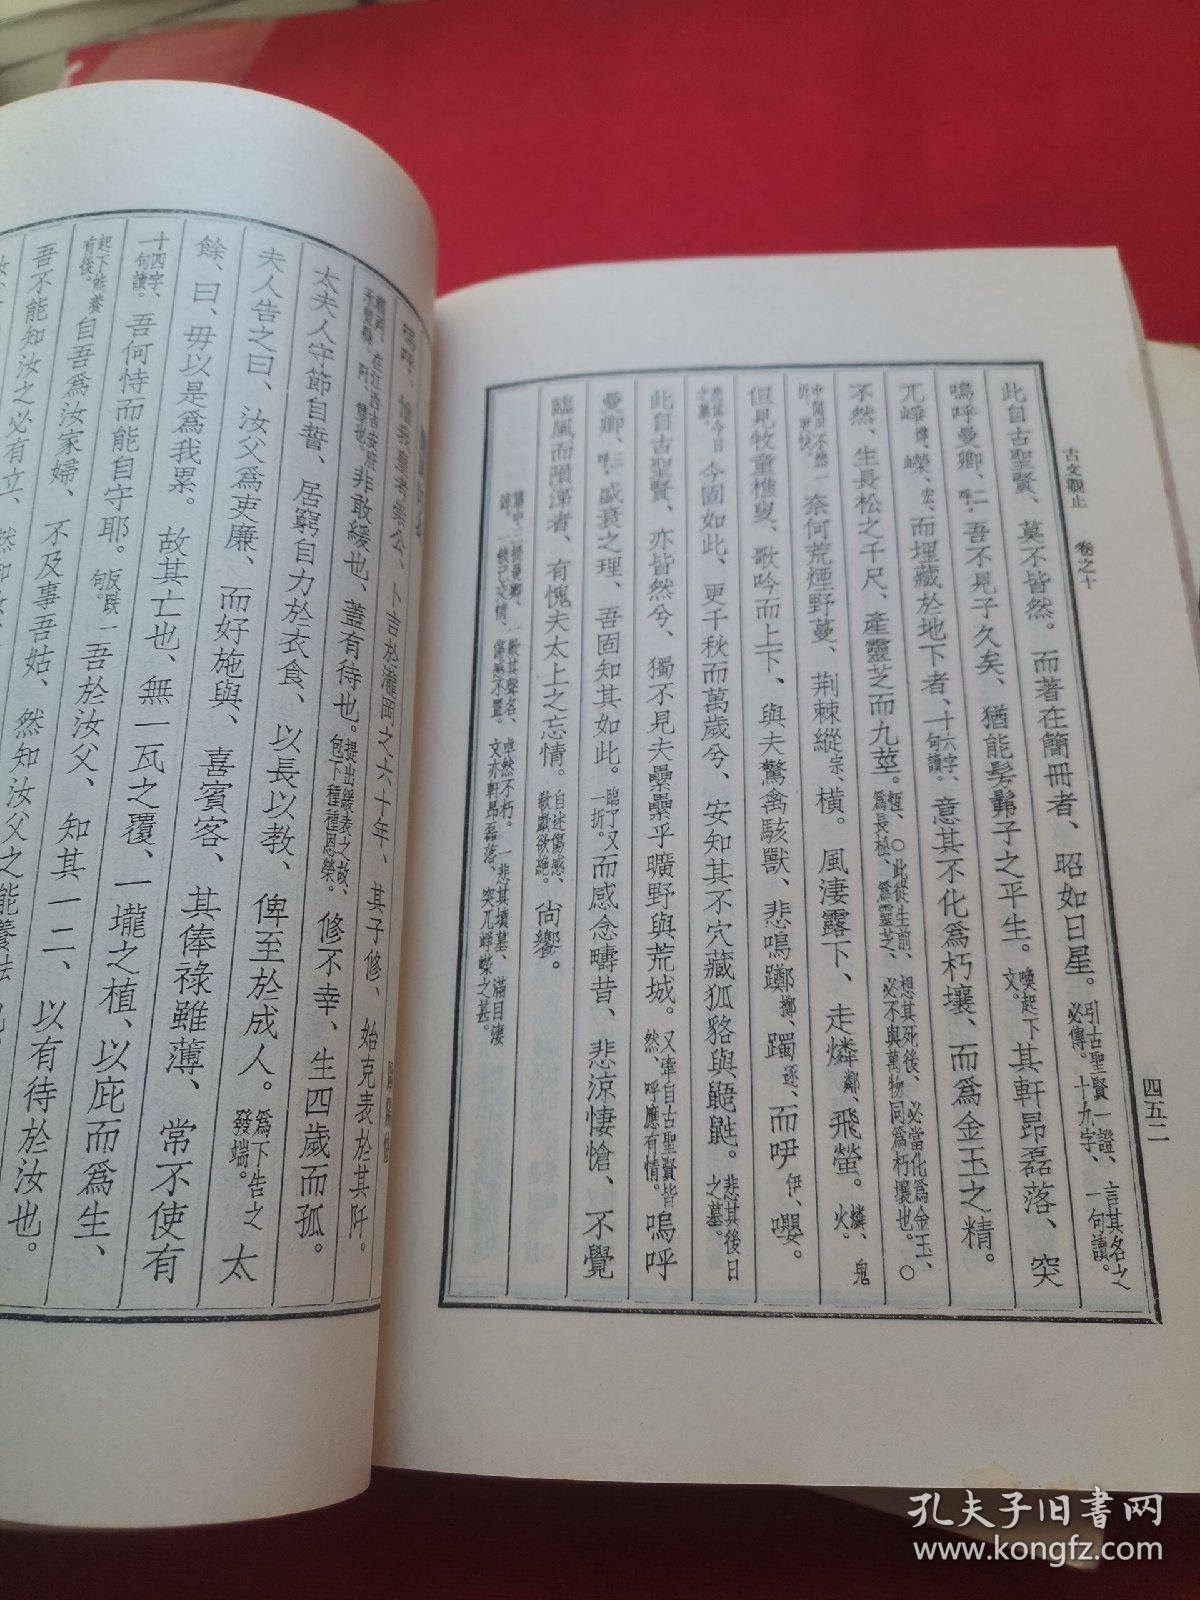 古文觀止　卷之十
四五二
此自古聖賢、莫不皆然。而著在簡冊者、昭如日星。引古聖賢一證、言其名之必傳。十九字、一句讀。
嗚呼曼卿、二呼。吾不見子久矣、猶能髣髴子之平生。喚起下文。其軒昂磊落、突
兀崢崢、嶸、宏、而埋藏於地下者、十六字、句讀。意其不化爲朽壤、而爲金玉之精。
不然、生長松之千尺、產靈芝而九莖。〇此從生前、想其死後、必當化爲金玉、爲長松、爲靈芝、必不與萬物同爲朽壤也。〇
奈何荒煙野蔓、荆棘縱宗、橫。風淒露下、走燐鄰、飛螢。燐、鬼火。
但見牧童樵叟、歌吟而上下、與夫驚禽駭獸、悲鳴躑擲、躅逐、而咿伊、嚶。
悲其今日之墓。今固如此、更千秋而萬歲兮、安知其不穴藏狐貉與鼯鼪。悲其後日之墓。
此自古聖賢、亦皆然兮、獨不見夫纍纍乎曠野與荒城。又牽自古聖賢皆然、呼應有情。嗚呼
曼卿、三呼。盛衰之理、吾固知其如此。臨了又一折。而感念疇昔、悲涼悽愴、不覺
臨風而隕涕者、有愧夫太上之忘情。自述傷感、欷歔欲絕。尚饗。
篇中三提曼卿、一歎其聲名、卓然不朽。一悲其墳墓、滿目淒
涼。一敘己交情、傷感不置。文亦軒昂磊落、突兀崢嶸之甚。
嗚呼。惟我皇考崇公、卜吉於瀧岡之六十年、其子修、始克表於其阡。
非敢緩也、蓋有待也。提出緩表之故、包下種種恩榮。
太夫人守節自誓、居窮自力於衣食、以長以教、俾至於成人。修不幸、生四歲而孤。
夫人告之曰、汝父爲吏廉、而好施與、喜賓客、其俸祿雖薄、常不使有
餘、曰、毋以是爲我累。故其亡也、無一瓦之覆、一壠之植、以庇而爲生、
十四字、句讀。吾何恃而能自守耶。反跌一句。吾於汝父、知其一二、以有待於汝也。
起下能養有後。自吾爲汝家婦、不及事吾姑、然知汝父之能養
吾不能知汝之必有立、然
爲下告之發端。太